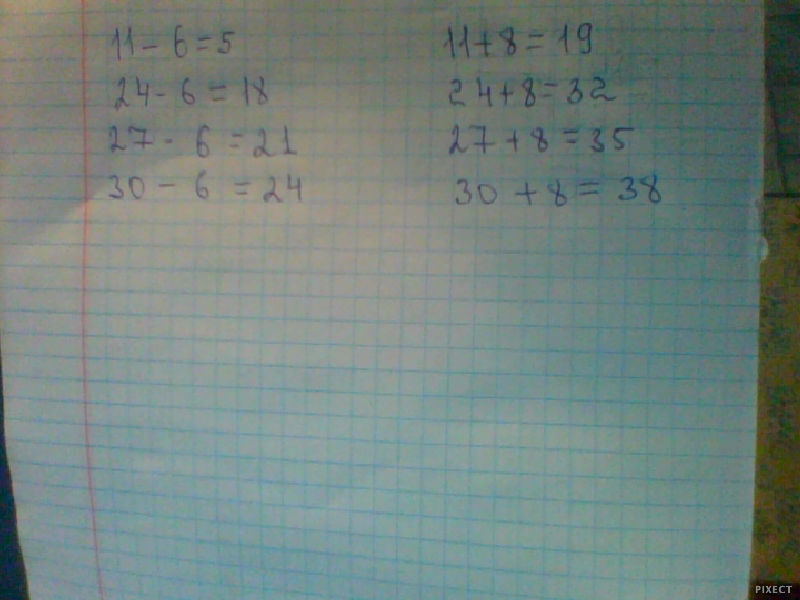 11 - 6 = 5
24 - 6 = 18
27 - 6 = 21
30 - 6 = 24
11 + 8 = 19
24 + 8 = 32
27 + 8 = 35
30 + 8 = 38
PIXECT